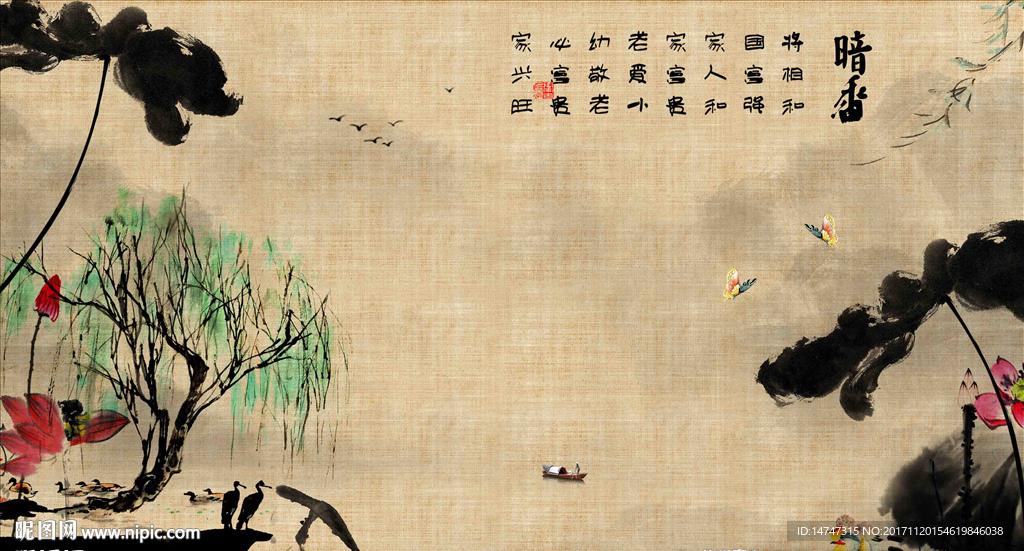 暗香
将相和
国富强
家人和
家富贵
老爱小
幼敬老
必富贵
家兴旺
昵图网 www.nipic.com
ID:14747315 NO:20171120154619846038